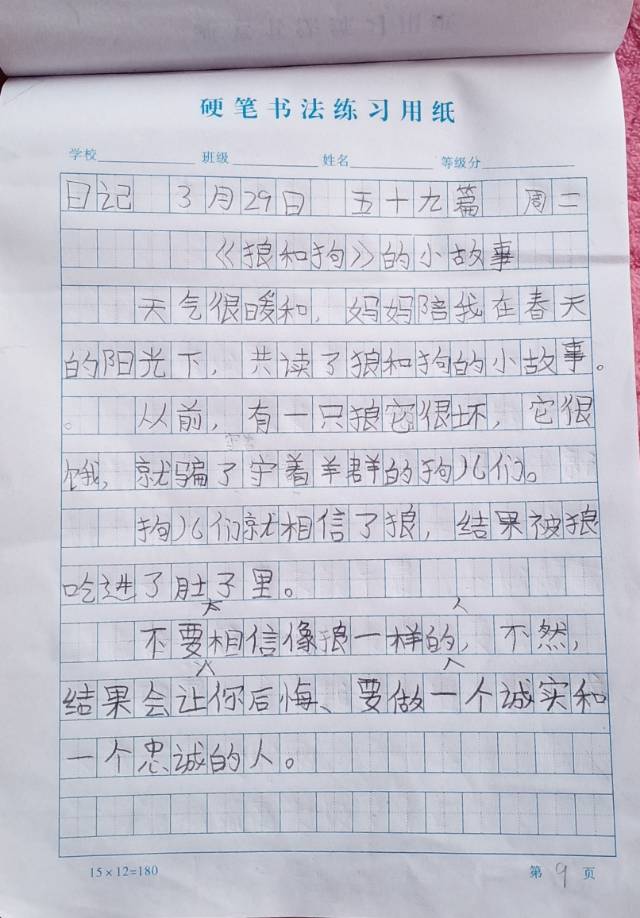 硬笔书法练习用纸
学校 班级 姓名 等级分
日记 3月29日 五十九篇 周二
《狼和狗》的小故事
天气很暖和，妈妈陪我在春天
的阳光下，共读了狼和狗的小故事。
。 从前，有一只狼它很坏，它很
饿，就骗了守着羊群的狗儿们。
狗儿们就相信了狼，结果被狼
吃进了肚子里。
不要相信像狼一样的，不然，
大 人
结果会让你后悔、要做一个诚实和
一个忠诚的人。
15×12=180 第9页